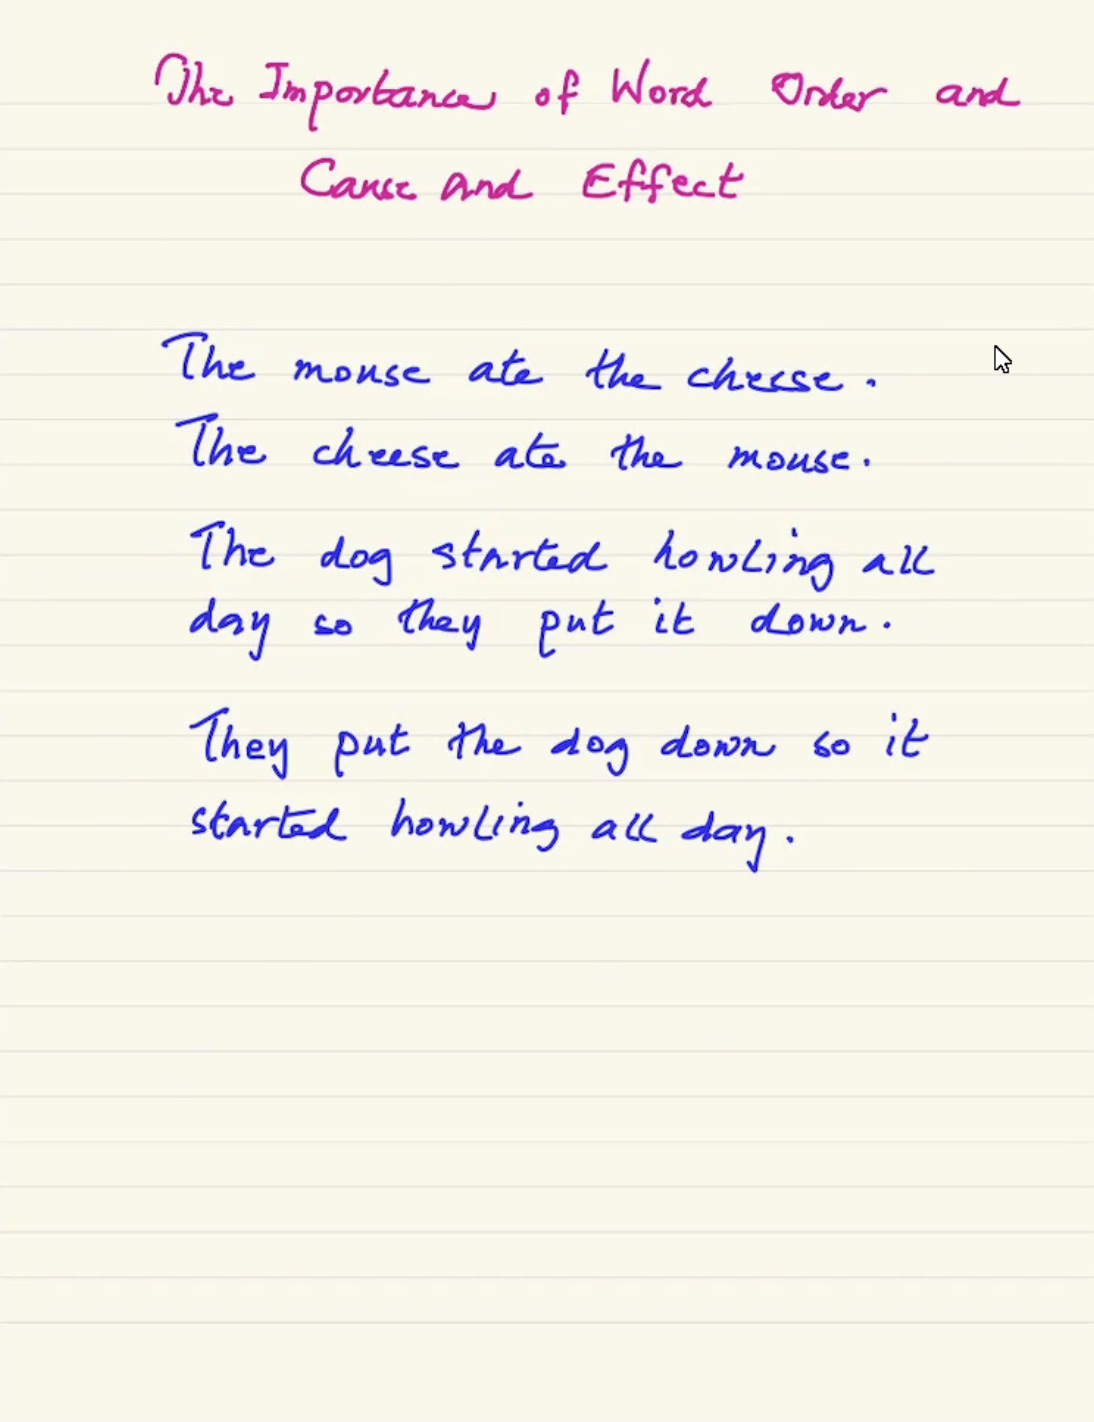 The Importance of Word Order and
Cause and Effect
The mouse ate the cheese.
The cheese ate the mouse.
The dog started howling all
day so they put it down.
They put the dog down so it
started howling all day.